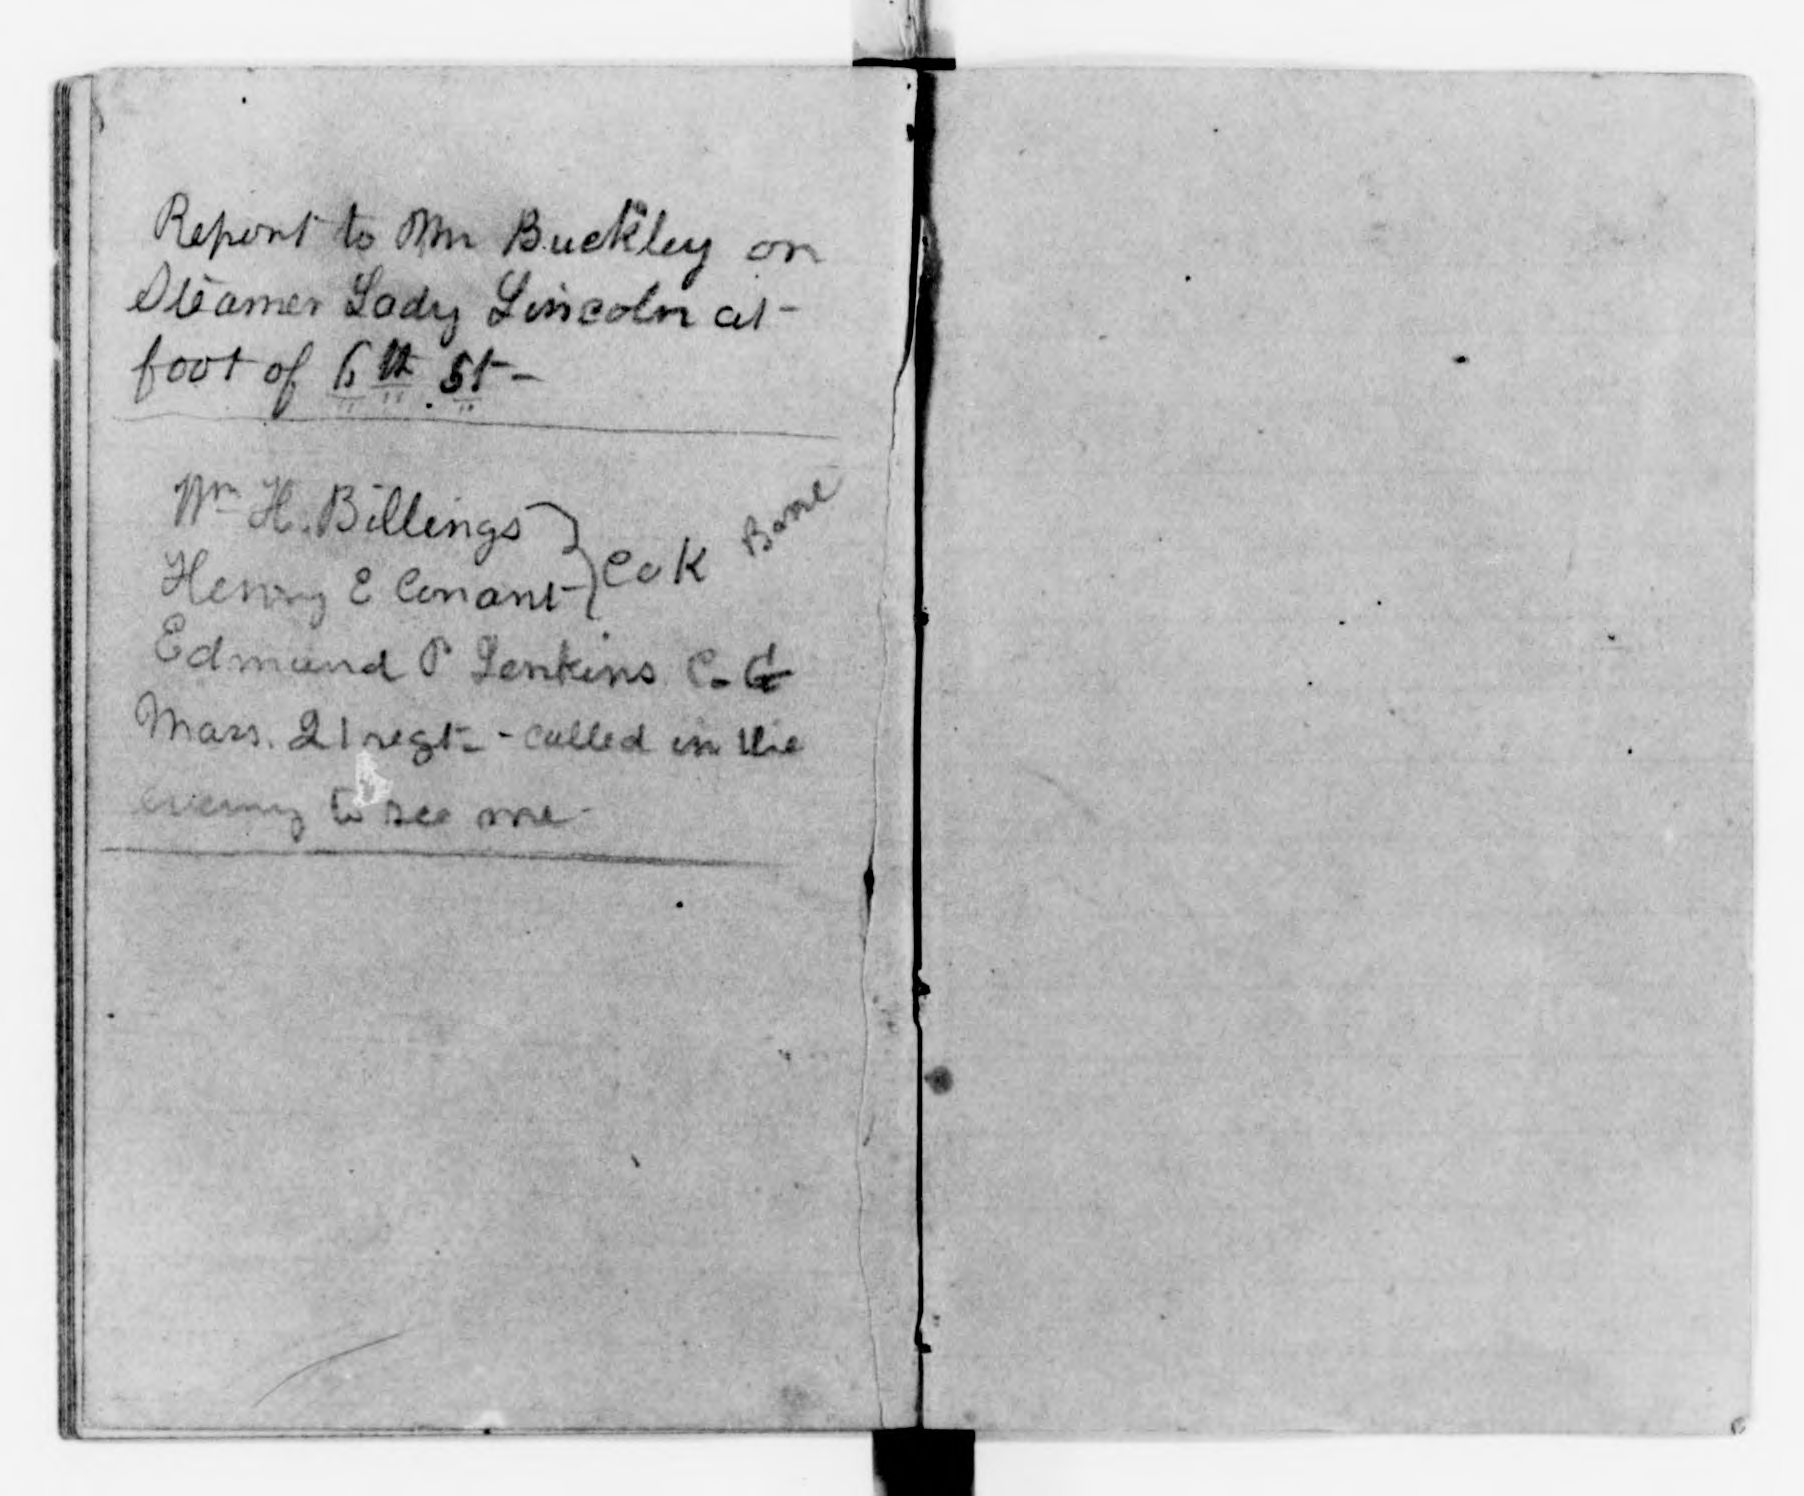 Report to Mr Buckley on
Steamer Lady Lincoln at-
foot of 6th St-
Wm H. Billings
Henry E Conant } Co K Barre
Edmund P Jenkins Co G
Mass. 21 regt- - called in the
evening to see me-